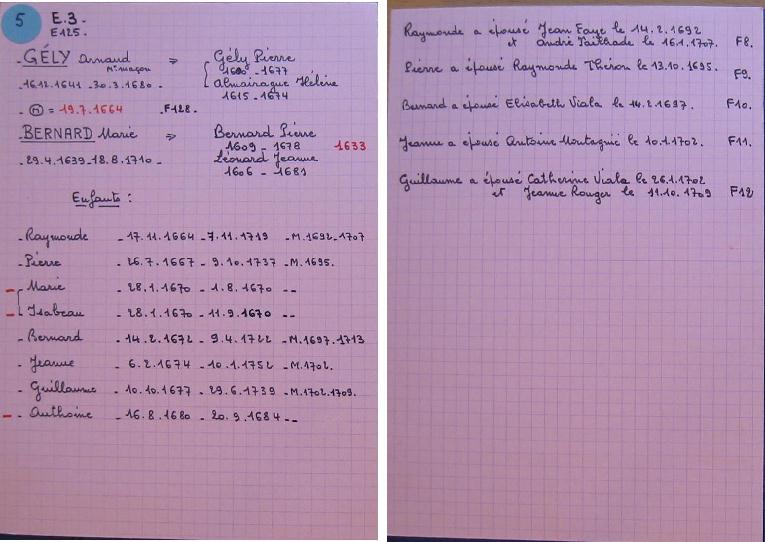 5 E.3.
E125.
- GÉLY Arnaud ⇒ Gély Pierre
Mtre maçon 1600 - 1677
Almairague Hélène
- 16.12.1641 - 30.3.1680 - 1615 - 1674
- (m) = 19.7.1664 - F128 -
BERNARD Marie ⇒ Bernard Pierre
1609 - 1678 1633
- 29.4.1639 - 18.8.1710 - Léonard Jeanne
1606 - 1681
Enfants :
- Raymonde - 17.11.1664 - 7.11.1719 - M.1692 - 1707
- Pierre - 26.7.1667 - 9.10.1737 - M.1695.
- Marie - 28.1.1670 - 1.8.1670 - -
- Isabeau - 28.1.1670 - 11.9.1670 - -
- Bernard - 14.2.1672 - 9.4.1722 - M.1697.1713
- Jeanne - 6.2.1674 - 10.1.1752 - M.1702.
- Guillaume - 10.10.1677 - 29.6.1739 - M.1702.1709.
- Anthoine - 16.8.1680 - 20.9.1684 - -
Raymonde a épousé Jean Faye le 14.2.1692
et André Tailhade le 16.1.1707. F8.
Pierre a épousé Raymonde Théron le 13.10.1695. F9.
Bernard a épousé Elisabeth Viala le 14.2.1697. F10.
Jeanne a épousé Antoine Montagnié le 10.1.1702. F11.
Guillaume a épousé Catherine Viala le 26.1.1702
et Jeanne Rouger le 11.10.1709 F12